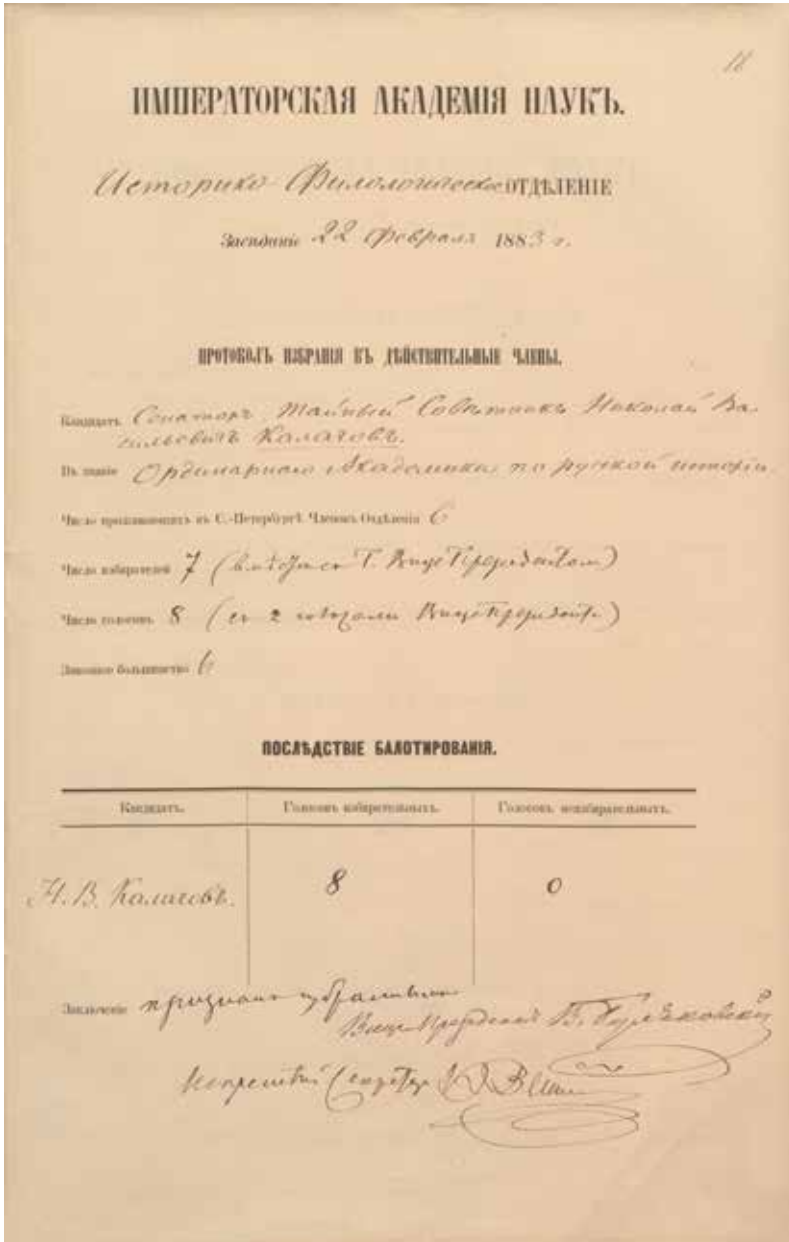 18
ИМПЕРАТОРСКАЯ АКАДЕМІЯ НАУКЪ.
Историко-Филологическое ОТДѢЛЕНІЕ
Засѣданіе 22 Февраля 1883 г.
ПРОТОКОЛЪ ИЗБРАНІЯ ВЪ ДѢЙСТВИТЕЛЬНЫЕ ЧЛЕНЫ.
Кандидатъ Сенаторъ Тайный Совѣтникъ Николай Ва-
сильевичъ Калачовъ.
Въ званіе Ординарнаго Академика по русской исторіи.
Число проживающихъ въ С.-Петербургѣ Членовъ Отдѣленія 6
Число избирателей 7 (вмѣстѣ съ Г. Вице-Президентомъ)
Число голосовъ 8 (съ 2 голосами Вице-Президента)
Законное большинство 6
ПОСЛѢДСТВІЕ БАЛОТИРОВАНІЯ.
Кандидатъ. Голосовъ избирательныхъ. Голосовъ неизбирательныхъ.
Н. В. Калачовъ. 8 0
Заключеніе признанъ избраннымъ
Вице-Президентъ В. Буняковскій
Секретарь